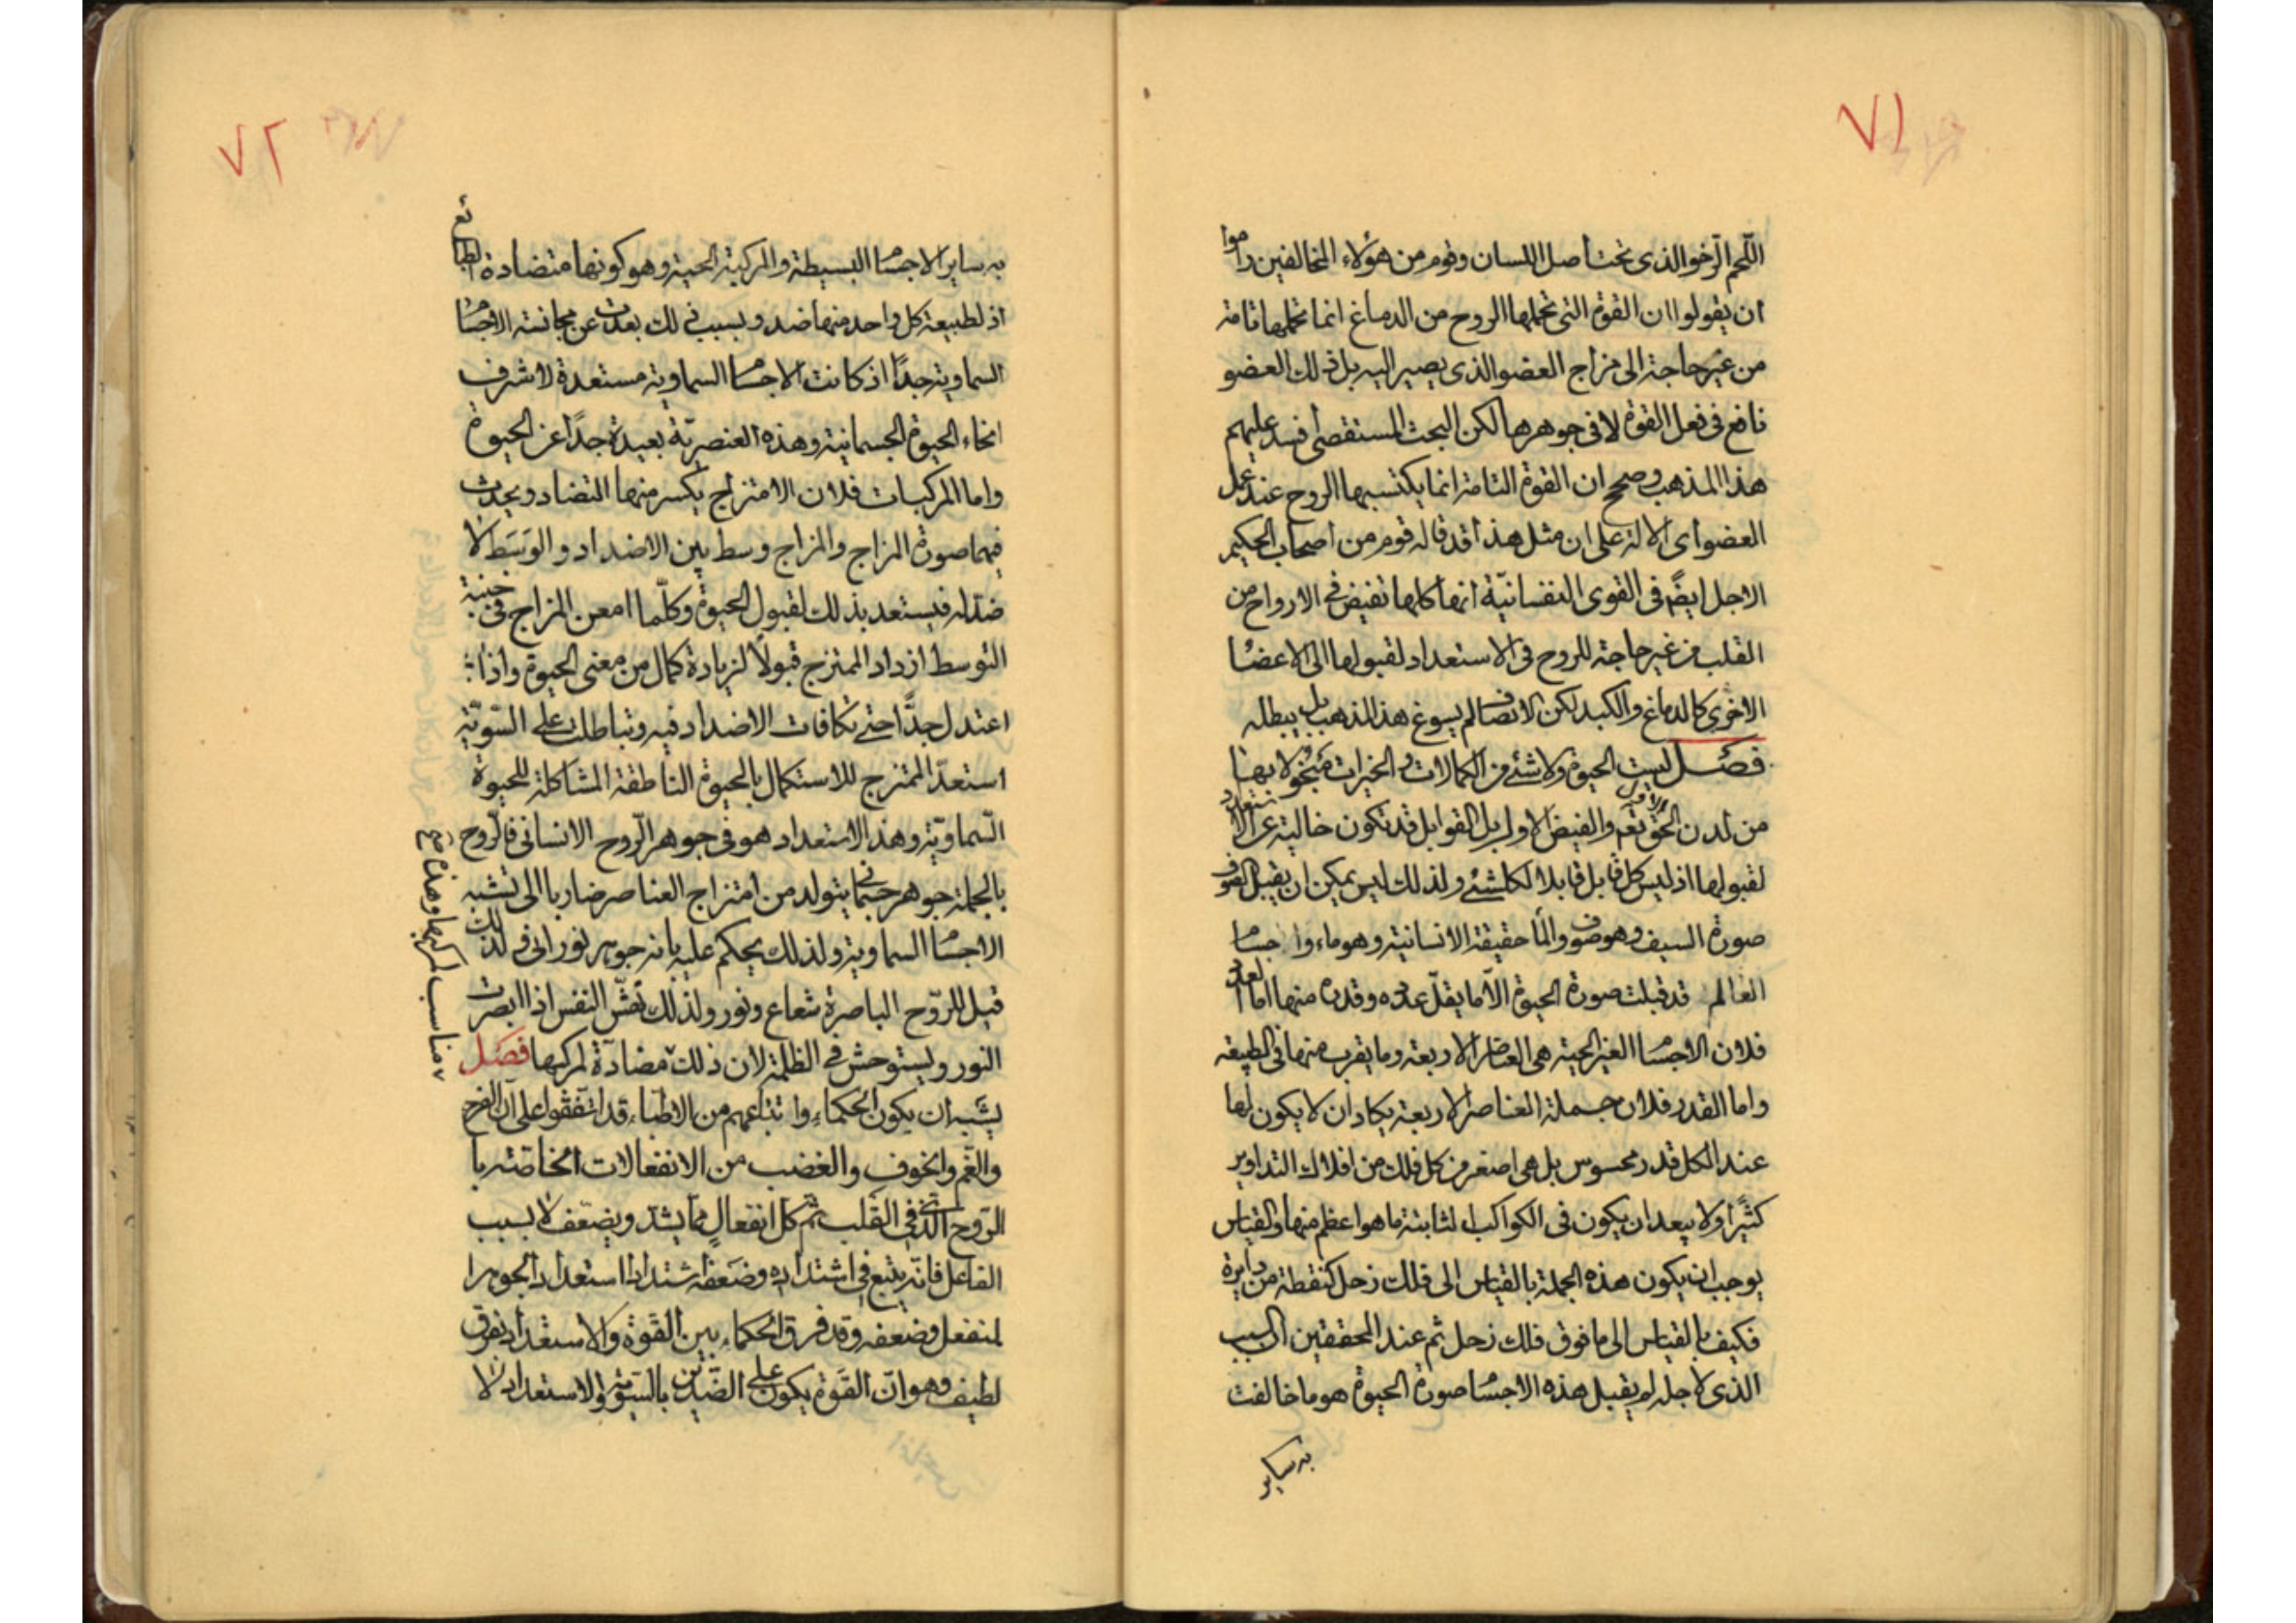 ٧١
اللّحم الرّخو الذى تحت أصل اللسان وقوم من هؤلاء المخالفين راموا
ان يقولوا ان القوة التى تحملها الروح من الدماغ انما تحملها تامة
من غير حاجة الى مزاج العضو الذى يصير اليه بل ذلك العضو
نافع فى فعل القوة لا فى جوهرها لكن البحث المستقصى افسد عليهم
هذا المذهب وصحح ان القوة التامة انما يكتسبها الروح عند
العضو اى الالة على ان مثل هذا قد قاله قوم من اصحاب الحكيم
الاجل ايضً فى القوى النفسانيّة انها كلها تفيض فى الارواح من
القلب من غير حاجة للروح فى الاستعداد لقبولها الى الاعضا
الاخرى كالدماغ والكبد لكن الانصاف لم يسوغ هذا المذهب بل يبطله
فصل ليست الحيوة ولا شئ من الكمالات و الخيرات مبخولا بها
من لدن الحق تعم والفيض الاول بل القوابل قد تكون خالية عن الا
لقبولها اذ ليس كل قابل قابلا لكل شئ ولذلك ليس يمكن ان يقبل الصوف
صورة السيف وهو صوف والما حقيقة الانسانية وهو ماء واجسام
العالم قد قبلت صورة الحيوة الاّ ما يقلّ عدده وقدره منها اما العدد
فلان الاجسا الغير الحية هى العناصر الاربعة وما يقرب منها فى الطبيعة
واما القدر فلان جملة العناصر الاربعة يكاد ان لا يكون لها
عند الكل قدر محسوس بل هى اصغر من كل فلك من افلاك التداوير
كثيرًا ولا يبعد ان يكون فى الكواكب الثابتة ما هو اعظم منها والقياس
يوجب ان يكون هذه الجملة بالقياس الى فلك زحل كنقطة من دايرة
فكيف بالقياس الى ما فوق فلك زحل ثم عند المحققين السبب
الذى لاجله لم يقبل هذه الاجسا صورة الحيوة هو ما خالفت
به ساير
٧٢
به ساير الاجسا البسيطة والمركبة الحية وهو كونها متضادة الطبائع
اذ لطبيعة كل واحد منها ضد وبسبب ذلك بعدت عن مجانسة الاجسا
السماوية جدًا اذ كانت الاجسا السماوية مستعدة لاشرف
انحاء الحيوة الجسمانية وهذه العنصريّة بعيدة جدًا عن الحيوة
واما المركبات فلان الامتزاج يكسر منها التضاد ويحدث
فيها صورة المزاج والمزاج وسط بين الاضداد والوَسَط لا
ضدّ له فيستعد بذلك لقبول الحيوة وكلّما امعن المزاج فى جنبة
التوسط ازداد الممتزج قبولًا لزيادة كمال من معنى الحيوة واذا
اعتدل جدًّا حتى تكافات الاضداد فيه وتباطلت على السّويّة
استعدّ الممتزج للاستكمال بالحيوة الناطقة المشاكلة للحيوة
السّماويّة وهذا الاستعداد هو فى جوهر الرّوح الانسانى فالرّوح
بالجملة جوهر جسمانى يتولد من امتزاج العناصر ضاربا الى تشبه
الاجسا السماوية ولذلك يحكم عليه بانه جوهر نورانى ولذلك
قيل للرّوح الباصرة شعاع ونور ولذلك تهشّ النفس اذا ابصرت
النور ويستوحش فى الظلمة لان ذلك مضادّة لمركبها فصَل
مناسب لمركبها وهذا
يشبه ان يكون الحكماء واتباعهم من الاطبّاء قد اتفقوا على انّ الفرح
والغّم والخوف والغضب من الانفعالات الخاصّة با
الرّوح الذى فى القلب ثمّ كل انفعالٍ مما يشتدّ ويضعف لا بسبب
الفاعل فانّه يتبع فى اشتداده وضَعفه اشتداد استعداد الجوهر ا
لمنفعل وضعفه وقد فرق الحكماء بين القوة والاستعداد بفرق
لطيف وهو انّ القوّة يكون على الضّدين بالسّوية والاستعداد لا